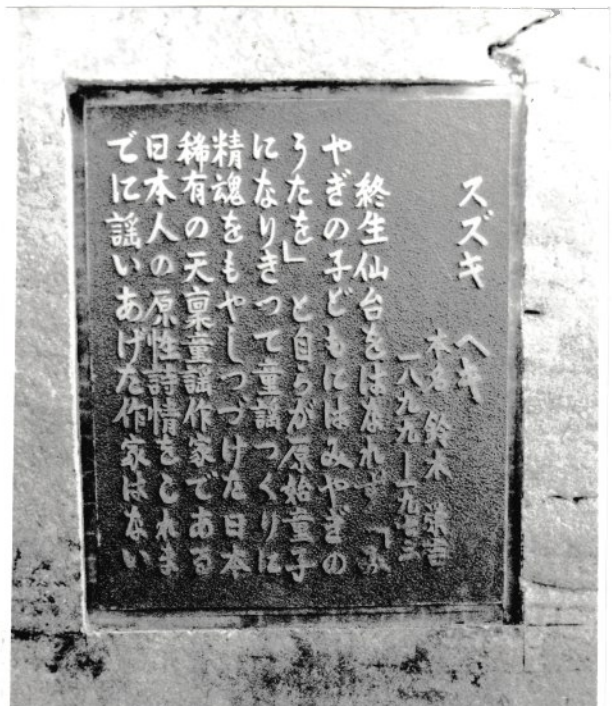 スズキ ヘキ
本名 鈴木 清
一八九九ー一九七三
終生仙台をはなれず 「み
やぎの子どもにはみやぎの
うたを」 と自らが原始童子
になりきつて童謡つくりに
精魂をもやしつづけた日本
稀有の天稟童謡作家である
日本人の原性詩情をこれま
でに謡いあげた作家はない